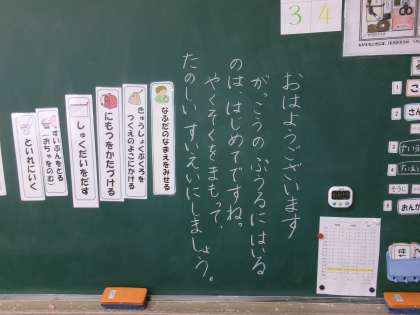 3 4
おはようございます
がっこうのぷうるにはいる
のは、はじめてですね。
やくそくをまもって、
たのしいすいえいにしましょう。
なふだのなまえをみせる
きゅうしょくぶくろを
つくえのよこにかける
にもつをかたづける
しゅくだいをだす
すいぶんをとる
(おちゃをのむ)
といれにいく
1
2
3
4
5
そうじ